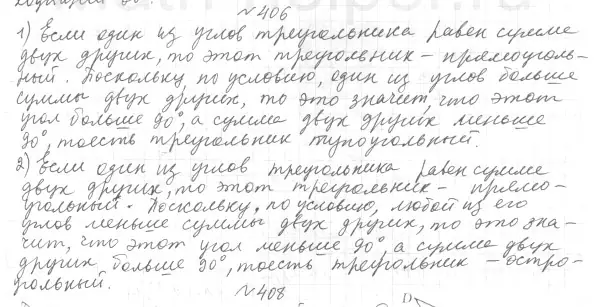 №406
1) Если один из углов треугольника равен сумме
двух других, то этот треугольник – прямоуголь-
ный. Поскольку по условию, один из углов больше
суммы двух других, то это значит, что этот
угол больше 90°, а сумма двух других меньше
90°, тоесть треугольник тупоугольный.
2) Если один из углов треугольника равен сумме
двух других, то этот треугольник – прямо-
угольный. Поскольку, по условию, любой из его
углов меньше суммы двух других, то это зна-
чит, что этот угол меньше 90°, а сумма двух
других больше 90°, тоесть треугольник – остро-
угольный.
№408
D